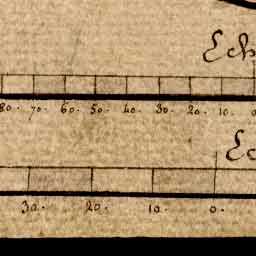 Ech
80. 70. 60. 50. 40. 30. 20. 10. 0
Ec
30. 20. 10. 0.